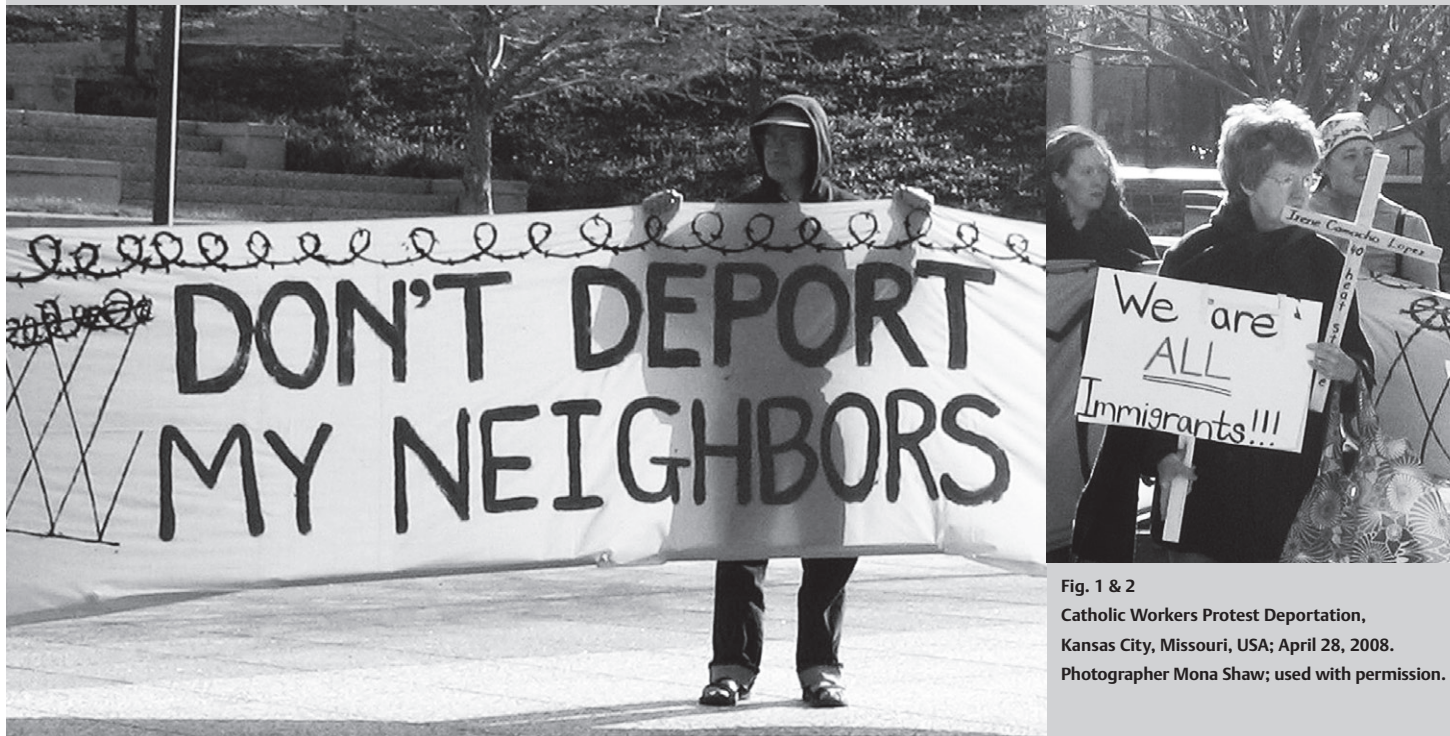 DON'T DEPORT
MY NEIGHBORS
We are
ALL
Immigrants!!!
Irene Camacho Lopez
40
heat
Fig. 1 & 2
Catholic Workers Protest Deportation,
Kansas City, Missouri, USA; April 28, 2008.
Photographer Mona Shaw; used with permission.